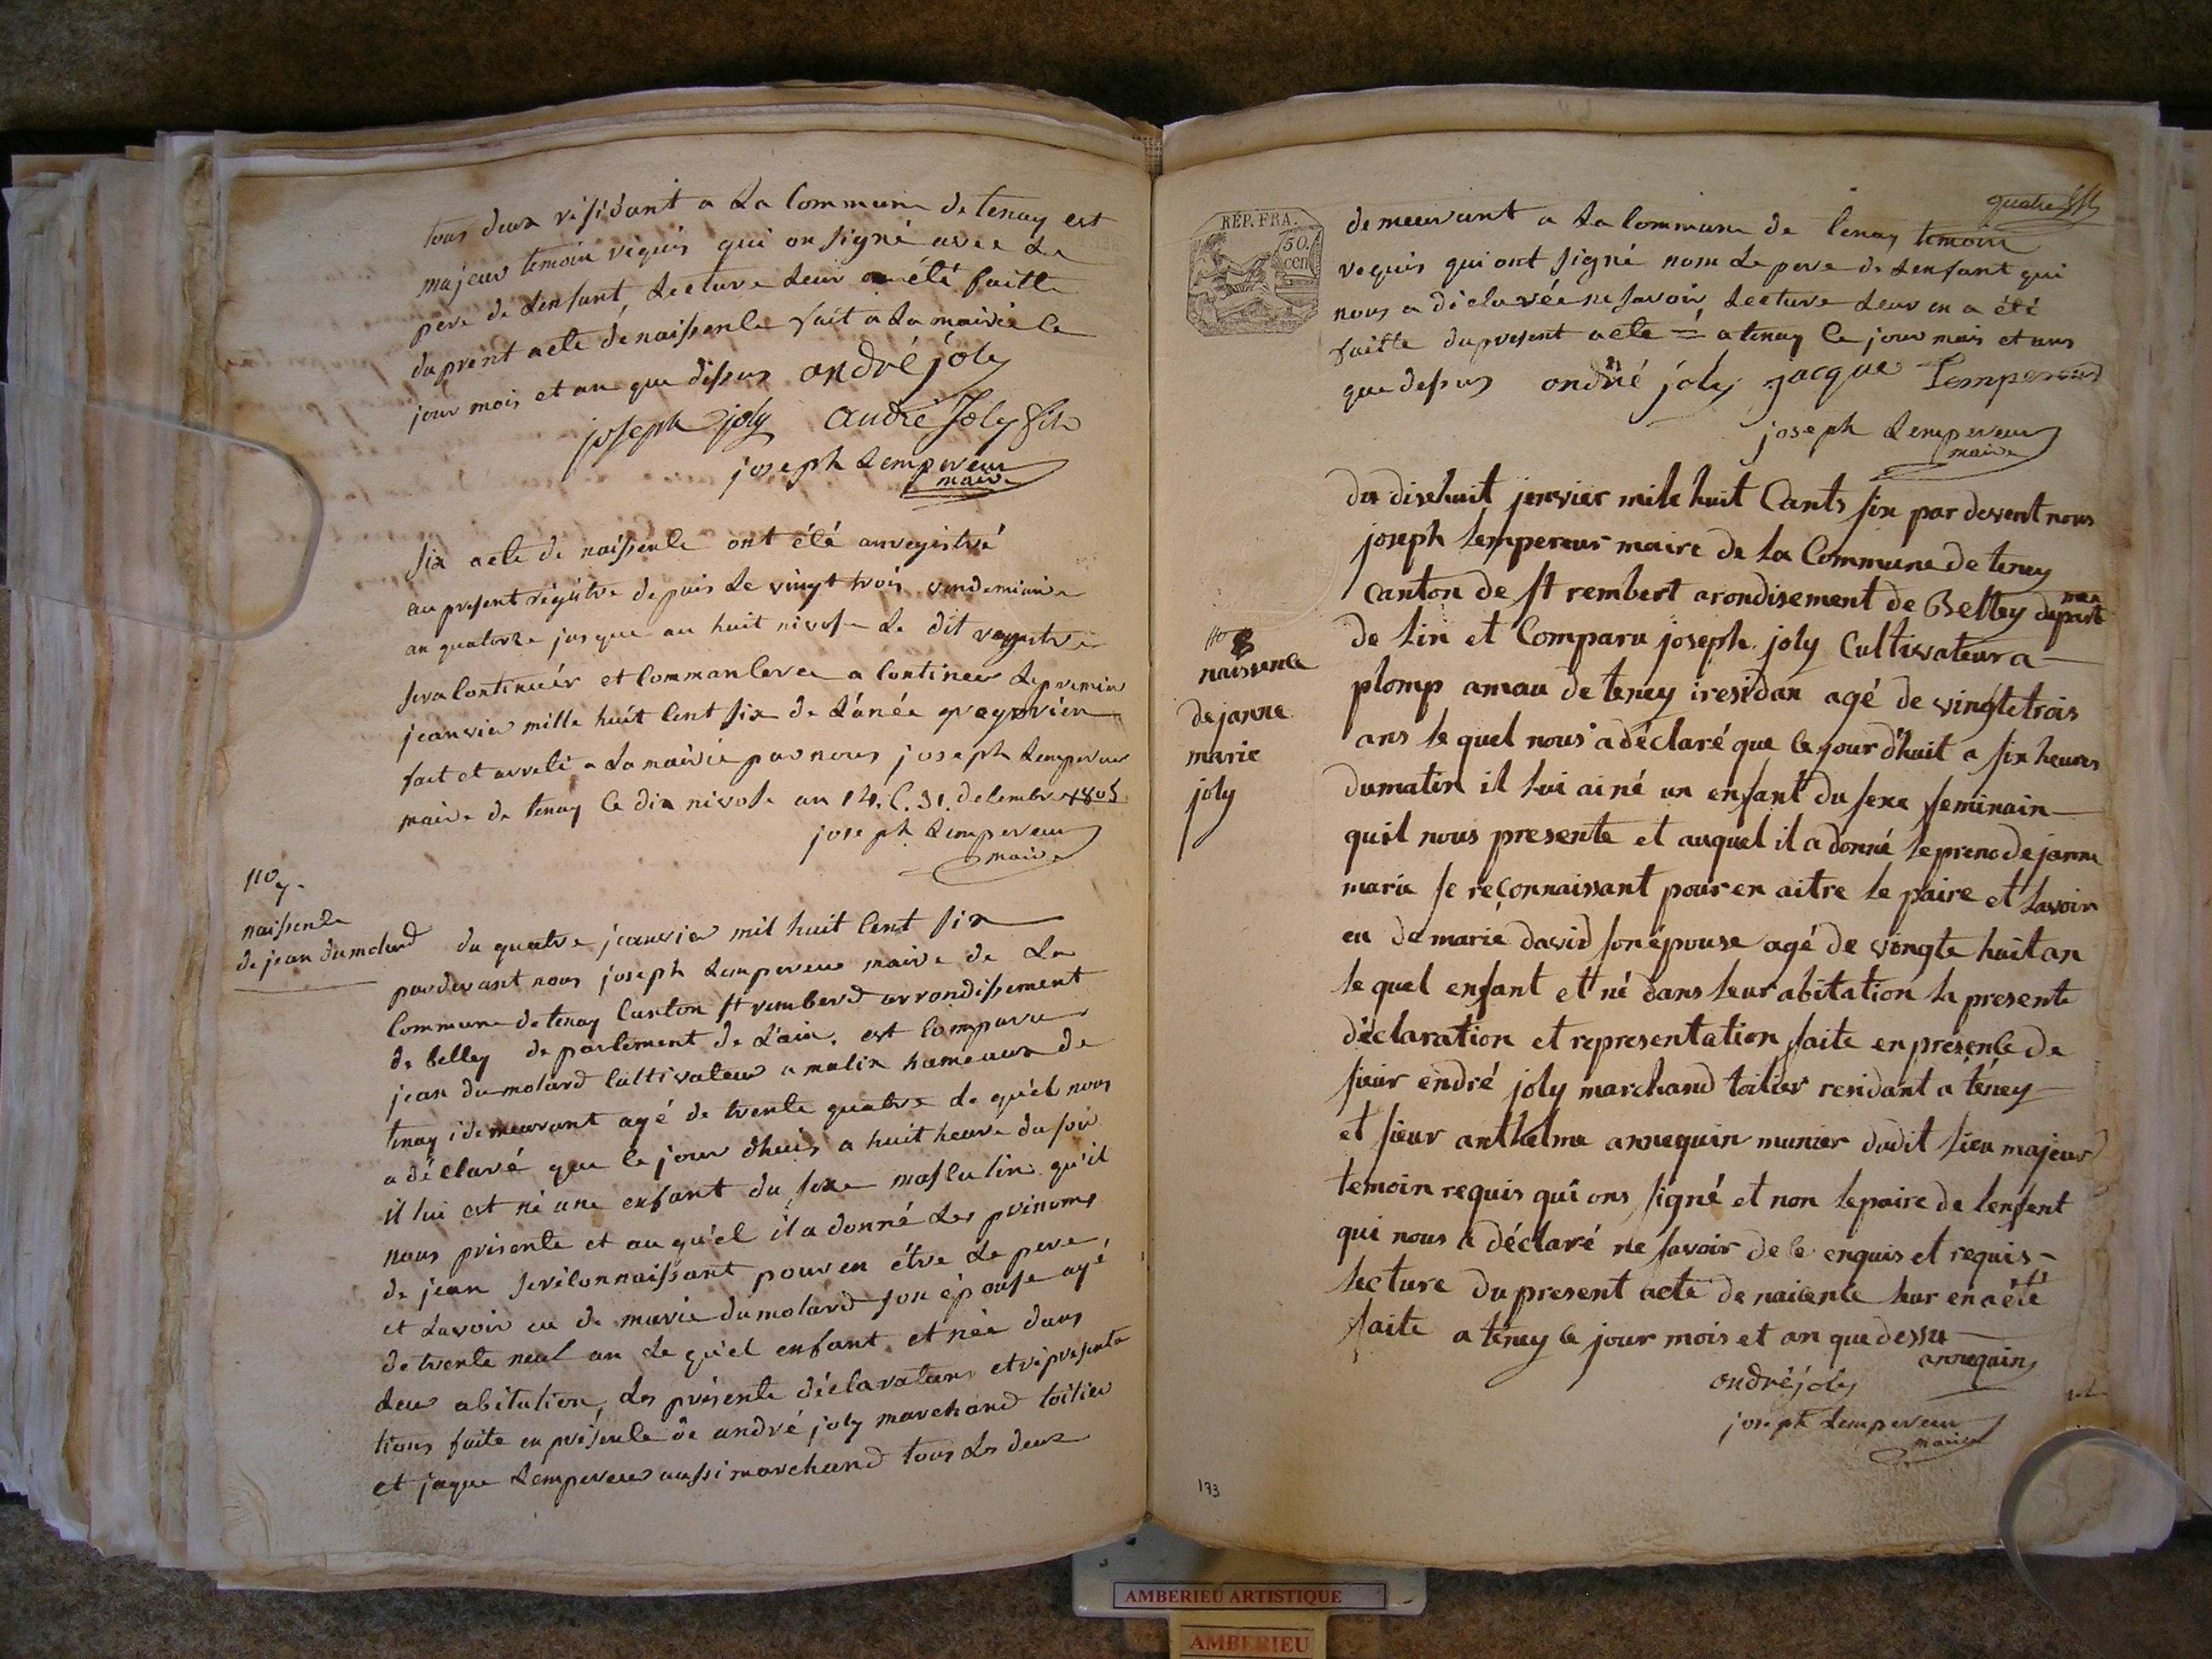 tous deux résidant a La Commune de tenay est
majeur temoin requis qui on signé avec Le
pere de Lenfant, Lecture Leur a été faitte
du prent acte de naissence fait a La mairie le
jour mois et an que dessus andré joly
joseph joly andré Joly fils
joseph Lempereur
maire
six acte de naissence ont été anregistré
au present registre depuis Le vingt trois vendemiaire
an quatorze jusque au huit nivose Le dit registre
sera Continuér et Commancera a Continuer Le premier
jeanvier mille huit cent six de L'anée gregorien
fait et arreté a La mairie par nous joseph Lempereur
maire de tenay le dix nivose an 14. C. 31. decembre 1805
joseph Lempereur
maire
no 7.
naissence
de jean dumolard
du quatre jeanvier mil huit cent six
pardevant nous joseph Lempereur maire de La
Commune de tenay Canton st remberd arrondissement
de belley departement de L'ain. est Comparu
jean dumolard Cultivateur a malix hameaux de
tenay i demeurant agé de trente quatre Le qu'el nous
a déclaré que le jour dhuis a huit heure du soir
il lui est né une enfant du sexe masculin qu'il
nous présente et au qu'el il a donné Les prénoms
de jean se réconnaissant pour en être Le pere,
et Lavoir eu de marie dumolard son épouse agé
de trente neuf an Le qu'el enfant et née dans
Leur abitation, Les présente déclarations et réprésenta
tions faite en présence de andré joly marchand toilier
et jaque Lempereur aussi marchand tous Les deux
quatre
RÉP. FRA.
50.
cen
demeurant a La Commune de tenay temoin
requis qui ont signé nom Le pere de Lenfant qui
nous a déclarée ne savoir Lecture Leur en a été
faitte du present acte = a tenay le jour mois et ans
que dessus andré joly jacque Lempereur
joseph Lempereur
maire
no 8
naissence
de janne
marie
joly
du dixhuit jenvier mile huit Cants six par devent nous
joseph lempereur maire de la Commune de teney
Canton de st rembert arondisement de Belley depart
de lin et Comparu joseph joly Cultivateur a
plomp amau de teney i residan agé de vingtetrois
ans le quel nous a déclaré que le jour d'huit a six heures
du matin il lui ainé un enfant du sexe feminain
quil nous presente et auquel il a donné le preno de janne
marie se reconnaissant pour en aitre le paire et lavoir
eu de marie david son épouse agé de vingte huit an
le quel enfant et né dans leur abitation la presente
déclaration et representation faite en présence de
sieur endré joly marchand toilier residant a téney
et sieur anthelme annequin munier dudit lieu majeur
temoin requis qui ons signé et non le paire de lenfent
qui nous a déclaré ne savoir de ce enquis et requis
lecture du present acte de naicence leur en a été
faite a téney le jour mois et an que dessu
annequin
andré joly
joseph Lempereur
maire
173
AMBERIEU ARTISTIQUE
AMBERIEU